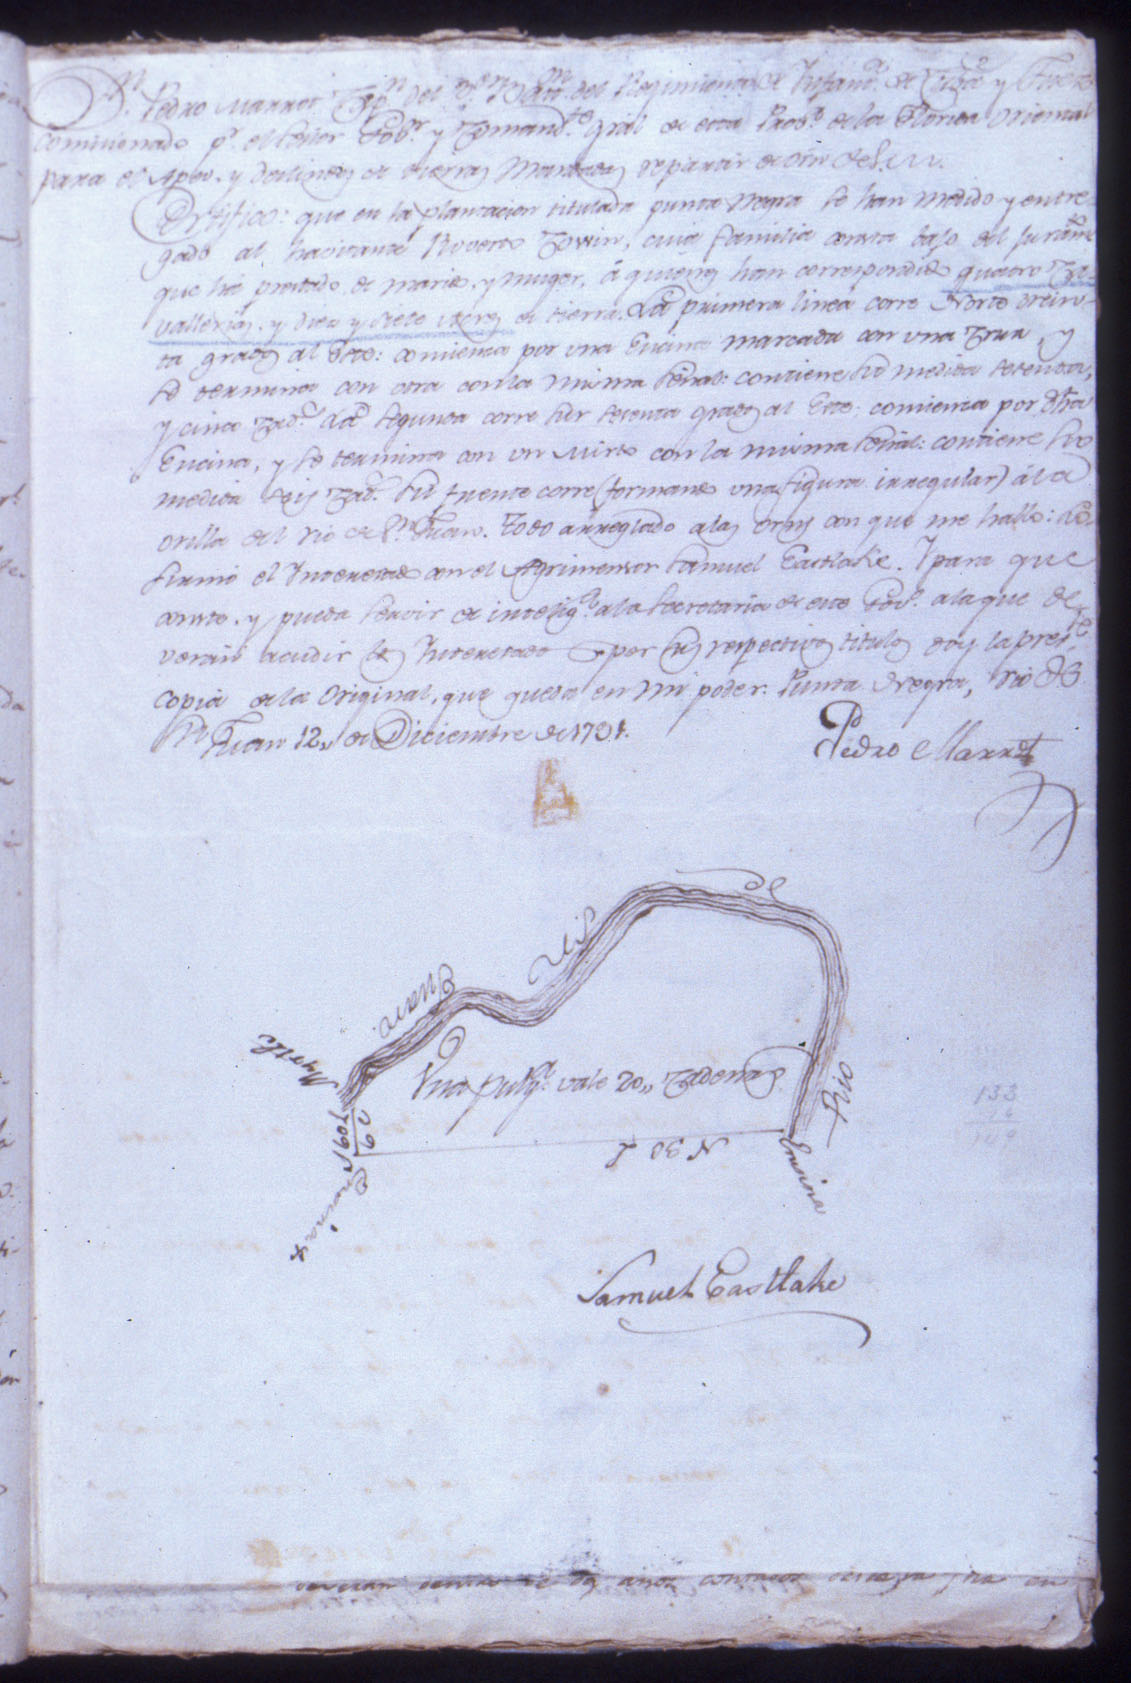 Dn. Pedro Marrot Capn. del 3er. Batn. del Regimiento de Infanta. de Cuba y Juez
Comicionado pr. el Señor Govr. y Comandte. Gral de esta Prova. de la Florida Oriental
para el Apeo. y deslindes de tierras Mandadas repartir de orn de S. M.
Certifico: que en la plantacion titulada punta Negra se han medido y entre-
gado al havitante Roverto Cowin, cuia familia consta bajo del juramto.
que há prestado de marido, y muger, á quienes han correspondido quatro Ca-
vallerias, y diez y siete Acres de tierra. La primera linea corre Norte trein-
ta grados al Este: comienza por una Encina marcada con una Cruz, y
se termina con otra con la misma señal: contiene su medida setenta,
y cinco Cads. La segunda corre Sur setenta grados al Este: comienza por dha
Encina, y se termina con un Mirto con la misma señal: contiene su
medida seis Cads. Su frente corre (formando una figura irregular) á la
orilla del rio de Sn. Juan. Todo arreglado a las orns con que me hallo: Lo
firmó el Interesado con el Agrimensor Samuel Eastlake. Y para que
conste, y pueda servir de inteliga. a la Secretaria de este Govo. a la que de-
verán acudir los Interesados por sus respectivos titulos doy la preste.
copia de la Original, que queda en mi poder. Punta Negra, rio de S
Sn. Juan 12,, de Diciembre de 1791.
Pedro Marrot
de
Sn
Juan
Myrtle
Una pulga. vale 20,, Cadenas
Rio
S 70 E
6 C
Encina x
N 30 E
Encina
133
16
149
Samuel Eastlake
deveran dentro de años contados desde la fha en